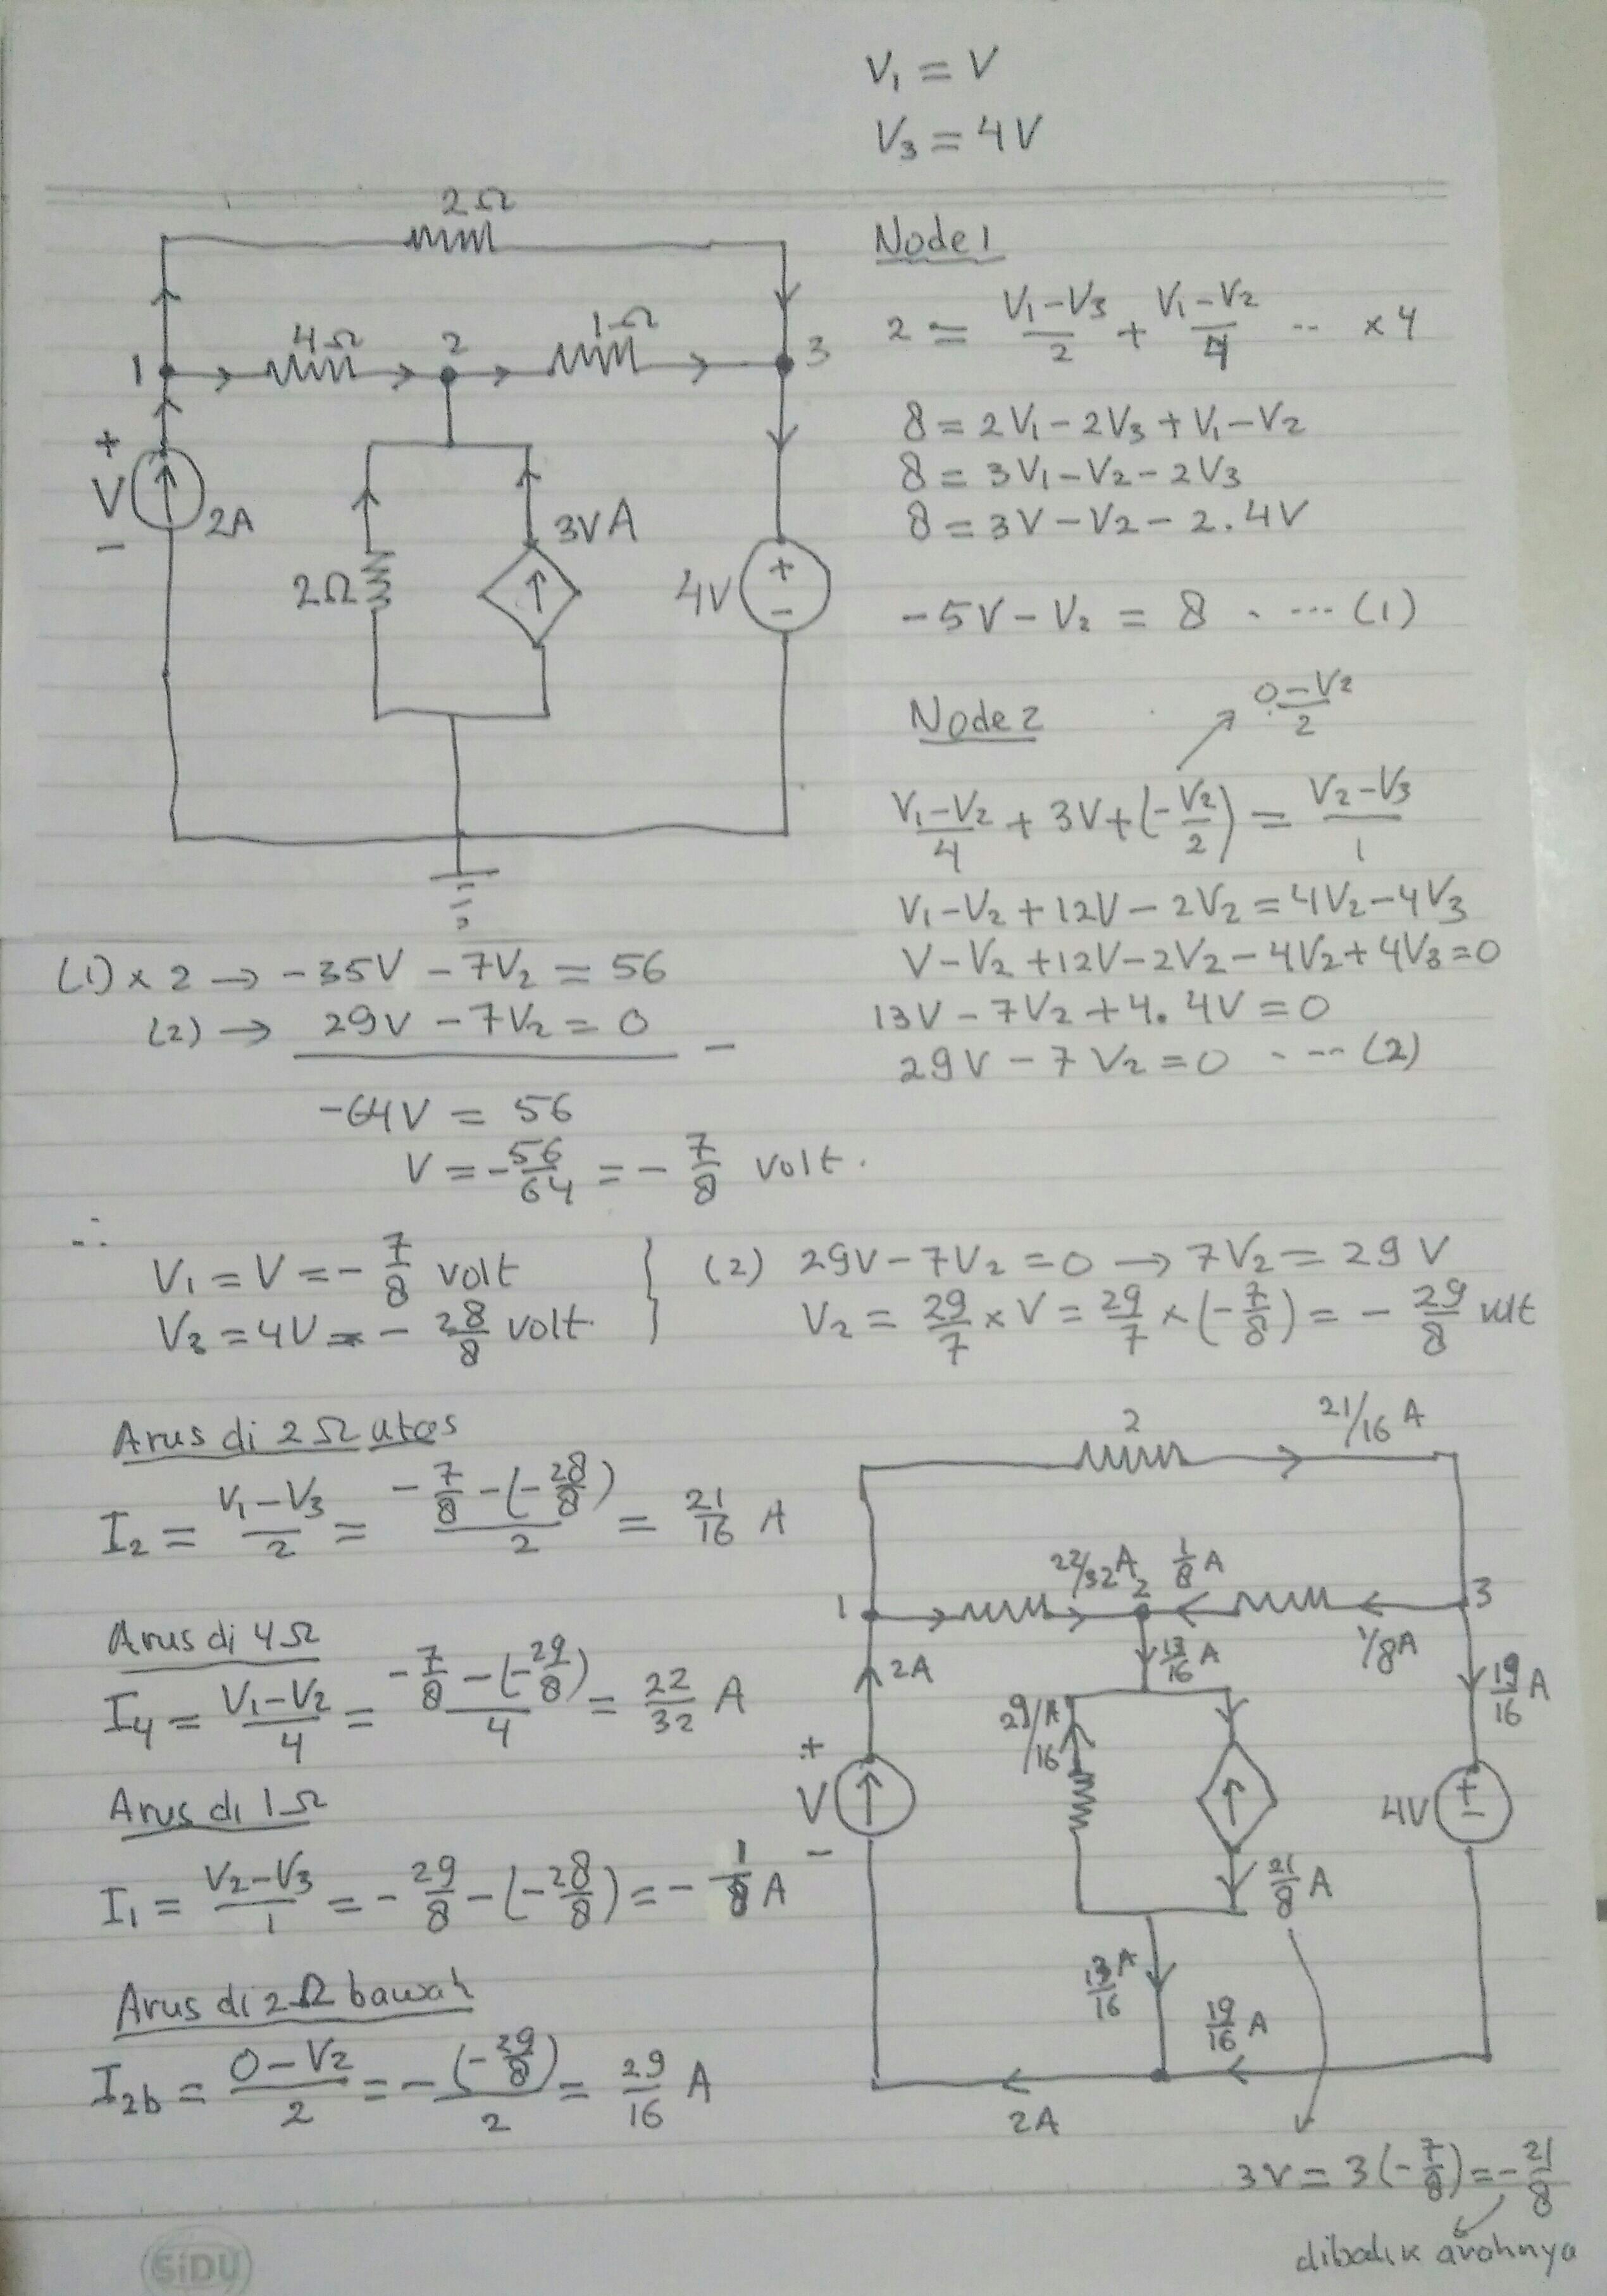 V₁ = V
V₃ = 4V
2Ω
4Ω
1Ω
1
2
3
+
V
-
2A
2Ω
3VA
4V
+
-
Node 1
2 = (V₁-V₃)/2 + (V₁-V₂)/4 ... x4
8 = 2V₁ - 2V₃ + V₁ - V₂
8 = 3V₁ - V₂ - 2V₃
8 = 3V - V₂ - 2.4V
-5V - V₂ = 8 . ... (1)
Node 2
(0-V₂)/2
(V₁-V₂)/4 + 3V + (-V₂/2) = (V₂-V₃)/1
V₁ - V₂ + 12V - 2V₂ = 4V₂ - 4V₃
V - V₂ + 12V - 2V₂ - 4V₂ + 4V₃ = 0
13V - 7V₂ + 4.4V = 0
29V - 7V₂ = 0 . ... (2)
(1) x 2 → -35V - 7V₂ = 56
(2) → 29V - 7V₂ = 0
-
-64V = 56
V = -56/64 = -7/8 volt.
∴
V₁ = V = -7/8 volt
V₃ = 4V = -28/8 volt
} (2) 29V - 7V₂ = 0 → 7V₂ = 29V
V₂ = 29/7 x V = 29/7 x (-7/8) = -29/8 volt
Arus di 2Ω atas
I₂ = (V₁-V₃)/2 = (-7/8 - (-28/8))/2 = 21/16 A
Arus di 4Ω
I₄ = (V₁-V₂)/4 = (-7/8 - (-29/8))/4 = 22/32 A
Arus di 1Ω
I₁ = (V₂-V₃)/1 = -29/8 - (-28/8) = -1/8 A
Arus di 2Ω bawah
I₂b = (0-V₂)/2 = -(-29/8)/2 = 29/16 A
2
21/16 A
22/32A
1/8 A
1
2
3
2A
13/16 A
1/8A
19/16 A
29/16 A
+
V
-
4V
+
-
21/8 A
13/16 A
19/16 A
2A
3V = 3(-7/8) = -21/8
dibalik arahnya
SiDU